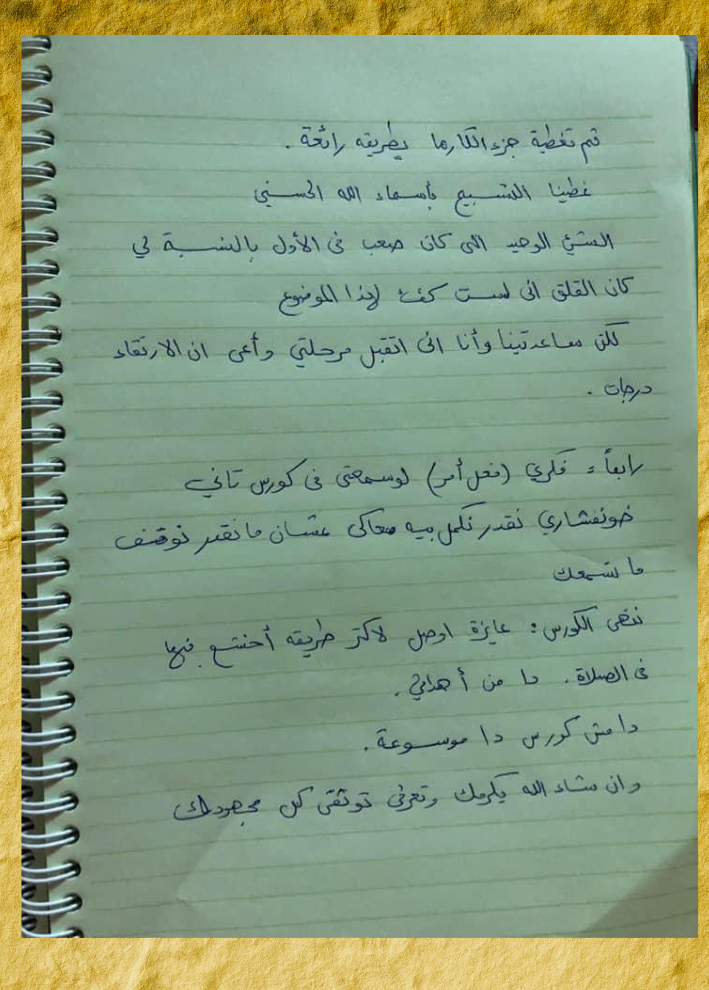 تم تغطية جزء الكارما بطريقه رائحة .
غطينا التسبيح بأسماء الله الحسني
الشئ الوحيد اللى كان صعب فى الأول بالنسبة لي
كان القلق انى لست كفء لهذا الموضوع
لكن ساعدتينا وأنا انى اتقبل مرحلتي وأعى ان الارتقاء
درجات .
رابعاً : فكري (فعل أمر) لو سمحتى فى كورس تاني
نقدر نكمل بيه معاكى عشان ما نقدر نوقف
ما نسمعك
ننهى الكورس : عايزة اوصل لاكتر طريقه أخشع فيها
فى الصلاة . دا من أهدافي .
دا مش كورس دا موسوعة .
وان شاء الله يكرمك وتعرفى توثقى كل مجهودك